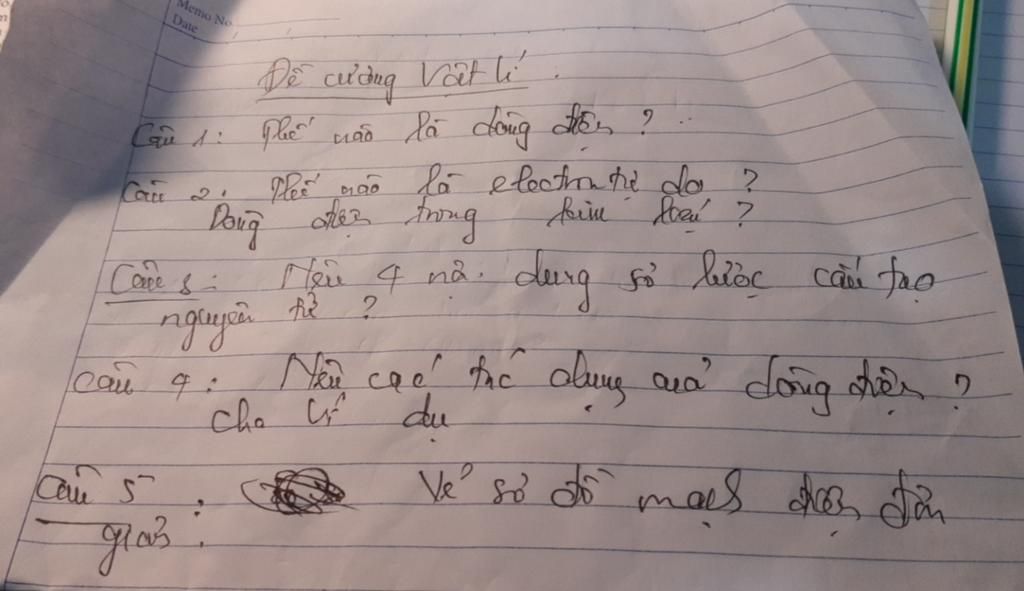 Memo No.
Date
Đề cương Vật lí
Câu 1: Thế nào là dòng điện ?
Câu 2: Thế nào là electron tự do ?
Dòng điện trong kim loại ?
Câu 3: Nêu 4 nội dung sơ lược cấu tạo
nguyên tử ?
Câu 4: Nêu các tác dụng quả dòng điện ?
cho ví dụ
Câu 5: Vẽ sơ đồ mạch điện đơn
giản.